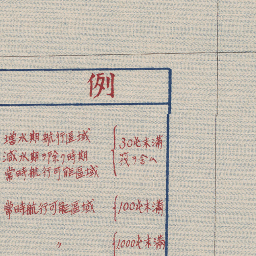 例
増水期航行區域
減水期ヲ除ク時期
常時航行可能區域
30瓲未満
常時航行可能區域
100瓲未満
〃
1000瓲未満